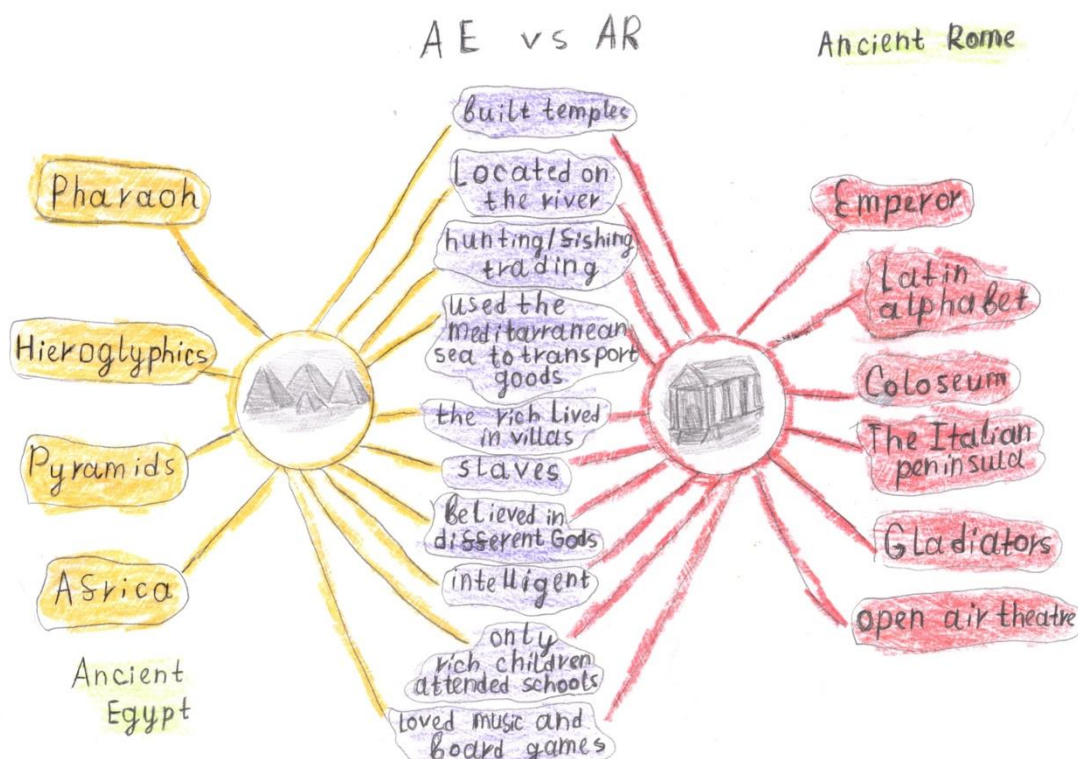 AE vs AR
Ancient Rome
Pharaoh
Hieroglyphics
Pyramids
Africa
Ancient
Egypt
built temples
Located on
the river
hunting/fishing
trading
used the
meditarranean
sea to transport
goods
the rich lived
in villas
slaves
Believed in
different Gods
intelligent
only
rich children
attended schools
Loved music and
board games
Emperor
Latin
alphabet
Coloseum
The Italian
peninsula
Gladiators
open air theatre